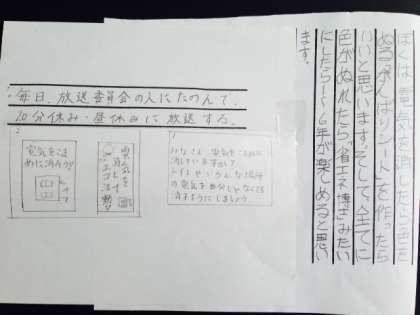 ぼくは、電気を消したら色を
ぬる「がんばりシート」を作ったら
いいと思います。そして、全てに
色がぬれたら「省エネ博士」みたい
にしたら1~6年が楽しめると思い
ます。
毎日、放送委員会の人にたのんで、
20分休み・昼休みに放送する。
電気をこま
めに消そう!
トイレ
電気を
消して
エコ活動
みなさん、電気をこまめに
消していますか?
トイレやいろんな場所
の電気を自分じゃなくても
消すようにしましょう。